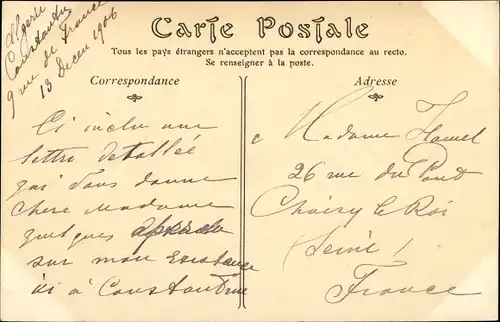 Algerie
Constantin
9 rue de France
13 Decem 1906
Carte Postale
Tous les pays étrangers n'acceptent pas la correspondance au recto.
Se renseigner à la poste.
Correspondance
Ci inclu une
lettre detaillée
qui vous donne
chere Madame
quelques
sur mon existance
ici à Constantine
Adresse
Madame Hamel
26 rue du Pont
Choisy le Roi
(Seine)
France